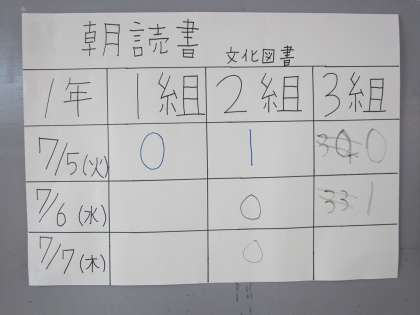 朝読書
文化図書
1年 1組 2組 3組
7/5(火) 0 1 0
7/6(水) 0 1
7/7(木) 0